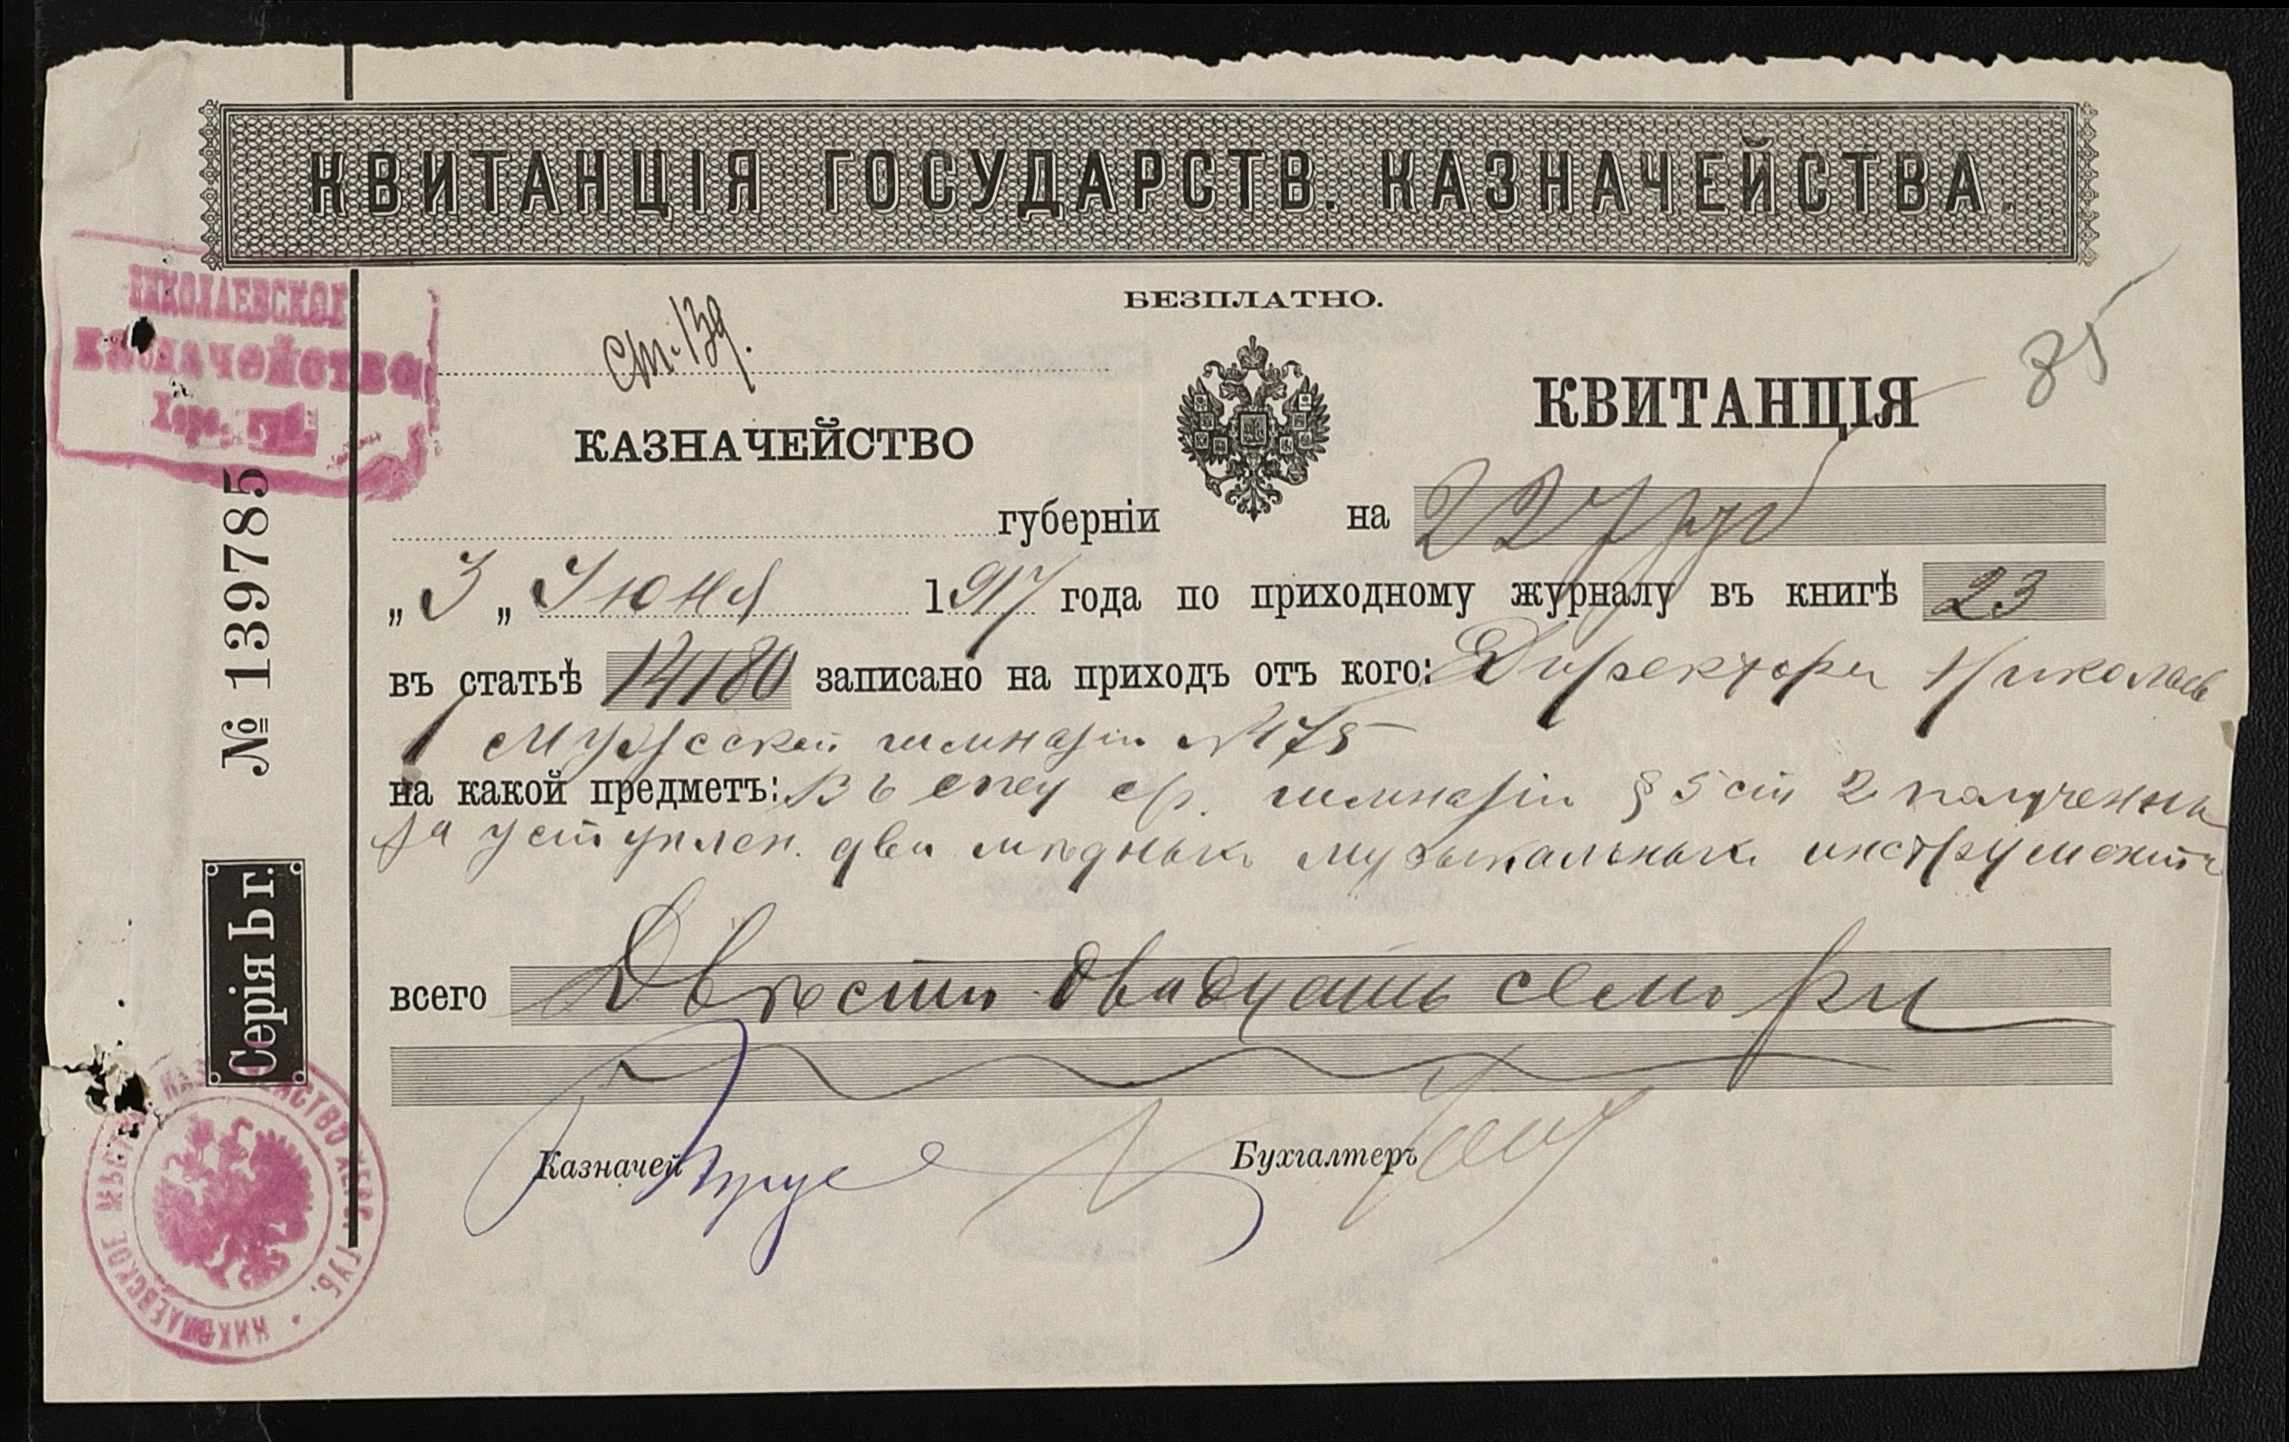 КВИТАНЦІЯ ГОСУДАРСТВ. КАЗНАЧЕЙСТВА.
БЕЗПЛАТНО.
НИКОЛАЕВСКОЕ
КАЗНАЧЕЙСТВО
Херс. губ.
ст. 139.
КАЗНАЧЕЙСТВО
губерніи
КВИТАНЦІЯ
85
на 227 руб
„3„ Июня 1917 года по приходному журналу въ книгѣ 23
въ статьѣ 14180 записано на приходъ отъ кого: Директора Николаев
1 мужской гимназіи № 475
на какой предметъ: Въ спец ср. гимназіи § 5 ст 2 полученны
за уступлен. два мѣдныхъ музыкальныхъ инструмента
всего Двѣсти двадцать семь ри
Казначей
Бухгалтеръ
№ 139785
Серія Ь г.
НИКОЛАЕВСКОЕ МѢСТН. КАЗНАЧЕЙСТВО ХЕРС. ГУБ.